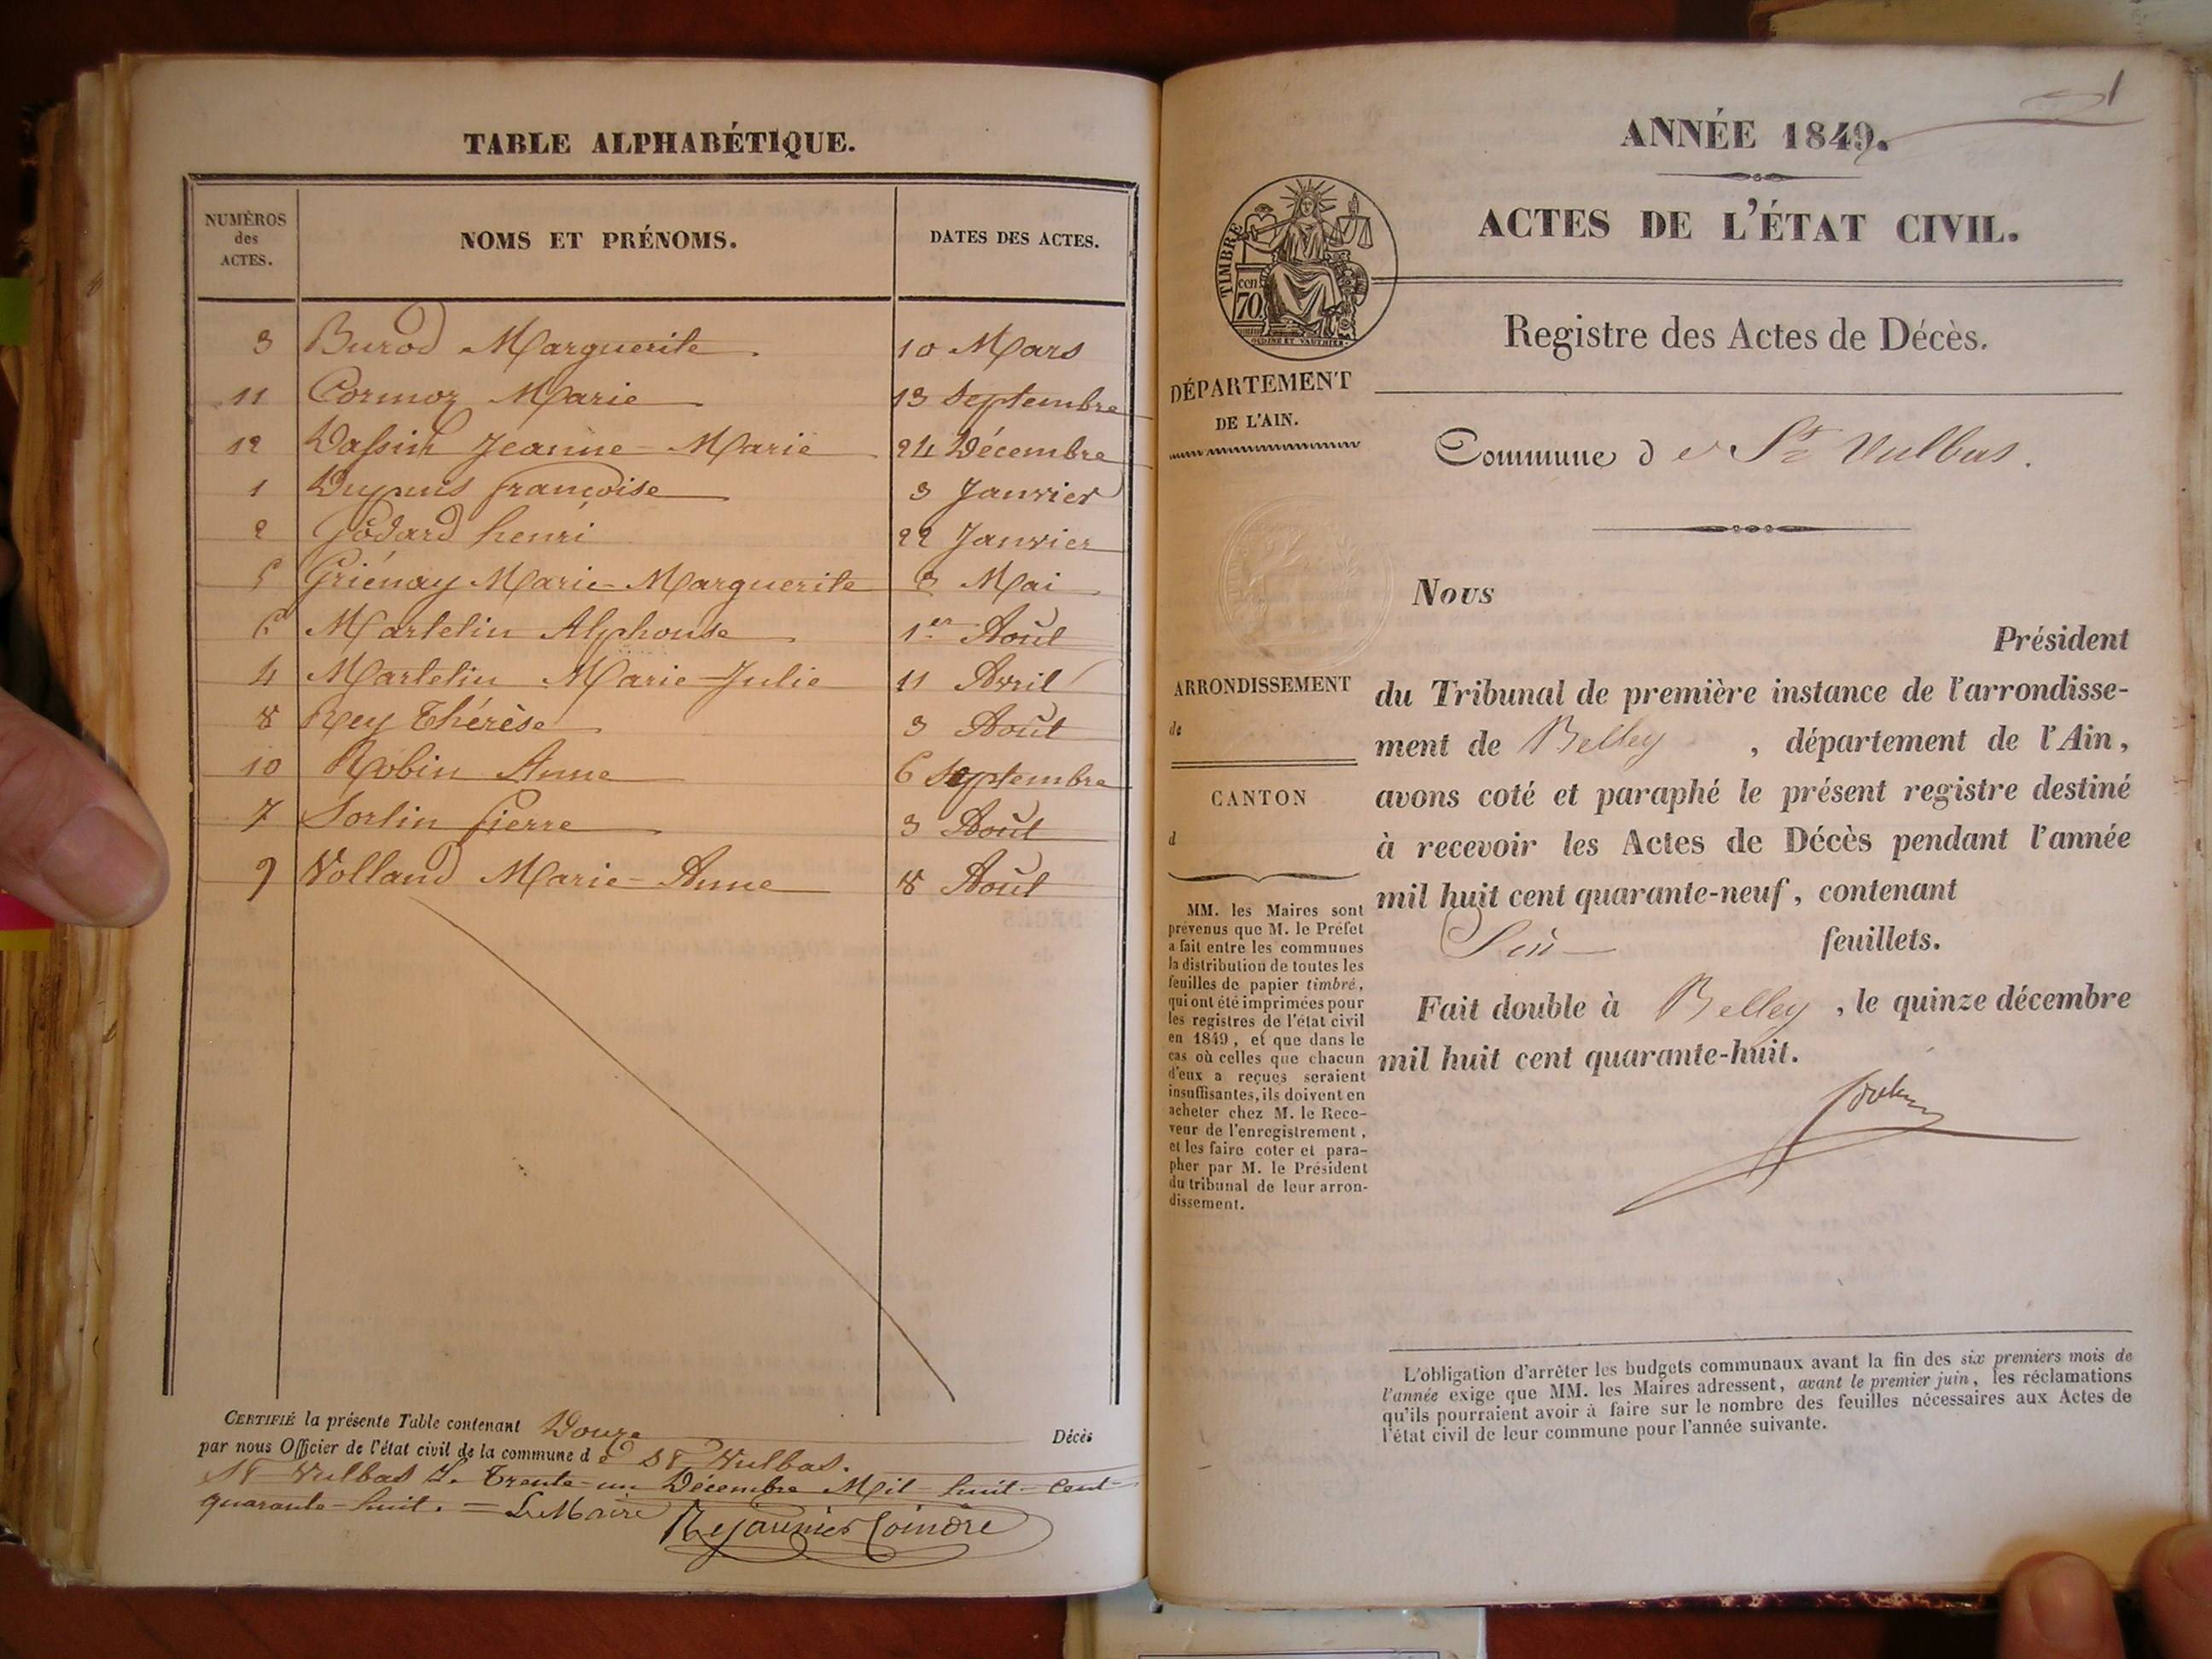 TABLE ALPHABÉTIQUE.
NUMÉROS des ACTES.
NOMS ET PRÉNOMS.
DATES DES ACTES.
3 Burod Marguerite 10 Mars
11 Cormoz Marie 13 Septembre
12 Jeanne-Marie 24 Décembre
1 Dupuis françoise 3 Janvier
2 Godard henri 22 Janvier
5 Griénay Marie-Marguerite 3 Mai
6 Martelin Alphonse 1er Août
4 Martelin Marie-Julie 11 Avril
8 Rey Thérèse 3 Août
10 Robin Anne 6 Septembre
7 Sorlin Pierre 3 Août
9 Volland Marie-Anne 8 Août
CERTIFIÉ la présente Table contenant Douze Décès
par nous Officier de l'état civil de la commune de St Vulbas.
St Vulbas Le Trente-un Décembre Mil-huit-cent-
quarante-huit. = Le Maire Rejaunier Coindre
1
ANNÉE 1849.
ACTES DE L'ÉTAT CIVIL.
TIMBRE
70 cen
OUDINÉ ET VAUTHIER.
Registre des Actes de Décès.
DÉPARTEMENT
DE L'AIN.
Commune de St Vulbas.
Nous
Président
du Tribunal de première instance de l'arrondisse-
ment de Belley, département de l'Ain,
avons coté et paraphé le présent registre destiné
à recevoir les Actes de Décès pendant l'année
mil huit cent quarante-neuf, contenant
Six feuillets.
Fait double à Belley, le quinze décembre
mil huit cent quarante-huit.
ARRONDISSEMENT
de
CANTON
d
MM. les Maires sont
prévenus que M. le Préfet
a fait entre les communes
la distribution de toutes les
feuilles de papier timbré,
qui ont été imprimées pour
les registres de l'état civil
en 1849, et que dans le
cas où celles que chacun
d'eux a reçues seraient
insuffisantes, ils doivent en
acheter chez M. le Rece-
veur de l'enregistrement,
et les faire coter et para-
pher par M. le Président
du tribunal de leur arron-
dissement.
L'obligation d'arrêter les budgets communaux avant la fin des six premiers mois de
l'année exige que MM. les Maires adressent, avant le premier juin, les réclamations
qu'ils pourraient avoir à faire sur le nombre des feuilles nécessaires aux Actes de
l'état civil de leur commune pour l'année suivante.